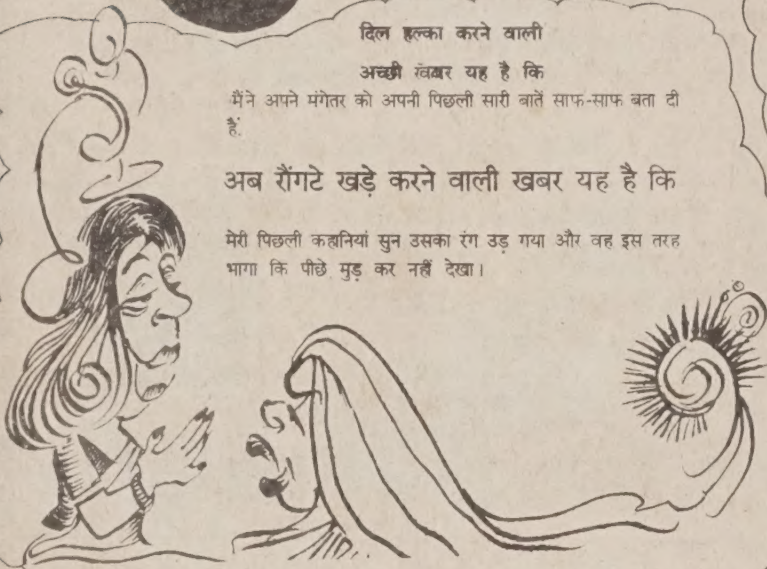 दिल हल्का करने वाली
अच्छी खबर यह है कि
मैंने अपने मंगेतर को अपनी पिछली सारी बातें साफ-साफ बता दी
हैं.
अब रौंगटे खड़े करने वाली खबर यह है कि
मेरी पिछली कहानियां सुन उसका रंग उड़ गया और वह इस तरह
भागा कि पीछे मुड़ कर नहीं देखा।